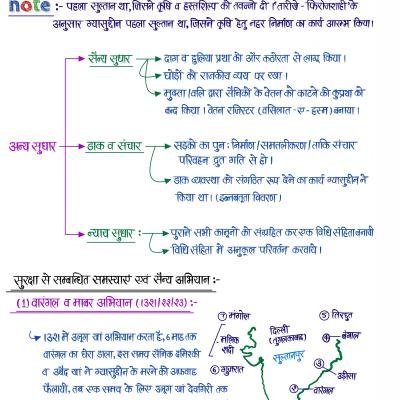 note :- पहला सुल्तान था, जिसने कृषि व हस्तशिल्प को तवज्जो दी। तारीखे - फिरोजशाही के
अनुसार ग्यासुद्दीन पहला सुल्तान था, जिसने कृषि हेतु नहर निर्माण का कार्य आरम्भ किया।
अन्य सुधार
सैन्य सुधार
दाग व हुलिया प्रथा को और कठोरता से लागू किया।
घोड़ों को राजकीय व्यय पर रखा।
मुक्ता/वलि द्वारा सैनिकों के वेतन को काटने की कुप्रथा को
बन्द किया। वेतन रजिस्टर (वसिलात - ए - हस्म) बनाया।
डाक व संचार
सड़कों का पुनः निर्माण/समतलीकरण/ताकि संचार
परिवहन द्रुत गति से हो।
डाक व्यवस्था को संगठित रूप देने का कार्य ग्यासुद्दीन ने
किया था। (इब्नबतूता विवरण)
न्याय सुधार :
पुराने सभी कानूनों को संग्रहित कर एक विधि संहिता बनायी
विधि संहिता में अनुकूल परिवर्तन करवाये।
सुरक्षा से सम्बन्धित समस्याएं एवं सैन्य अभियान :-
(1) वारंगल व माबर अभियान (1321/22/23) :-
1321 में अलूग खां अभियान करता है, 6 माह तक
वारंगल का घेरा डाला, इस समय सैनिक
व उबैद खां ने ग्यासुद्दीन के मरने की अफवाह
फैलायी, तब एक समय के लिए अलूग खां देवगिरी तक
① मंगोल
मलिक
शादी
⑥ गुजरात
दिल्ली
(तुगलकाबाद)
सुल्तानपुर
⑤ तिरहुत
④ बंगाल
③ उड़ीसा
वारंगल